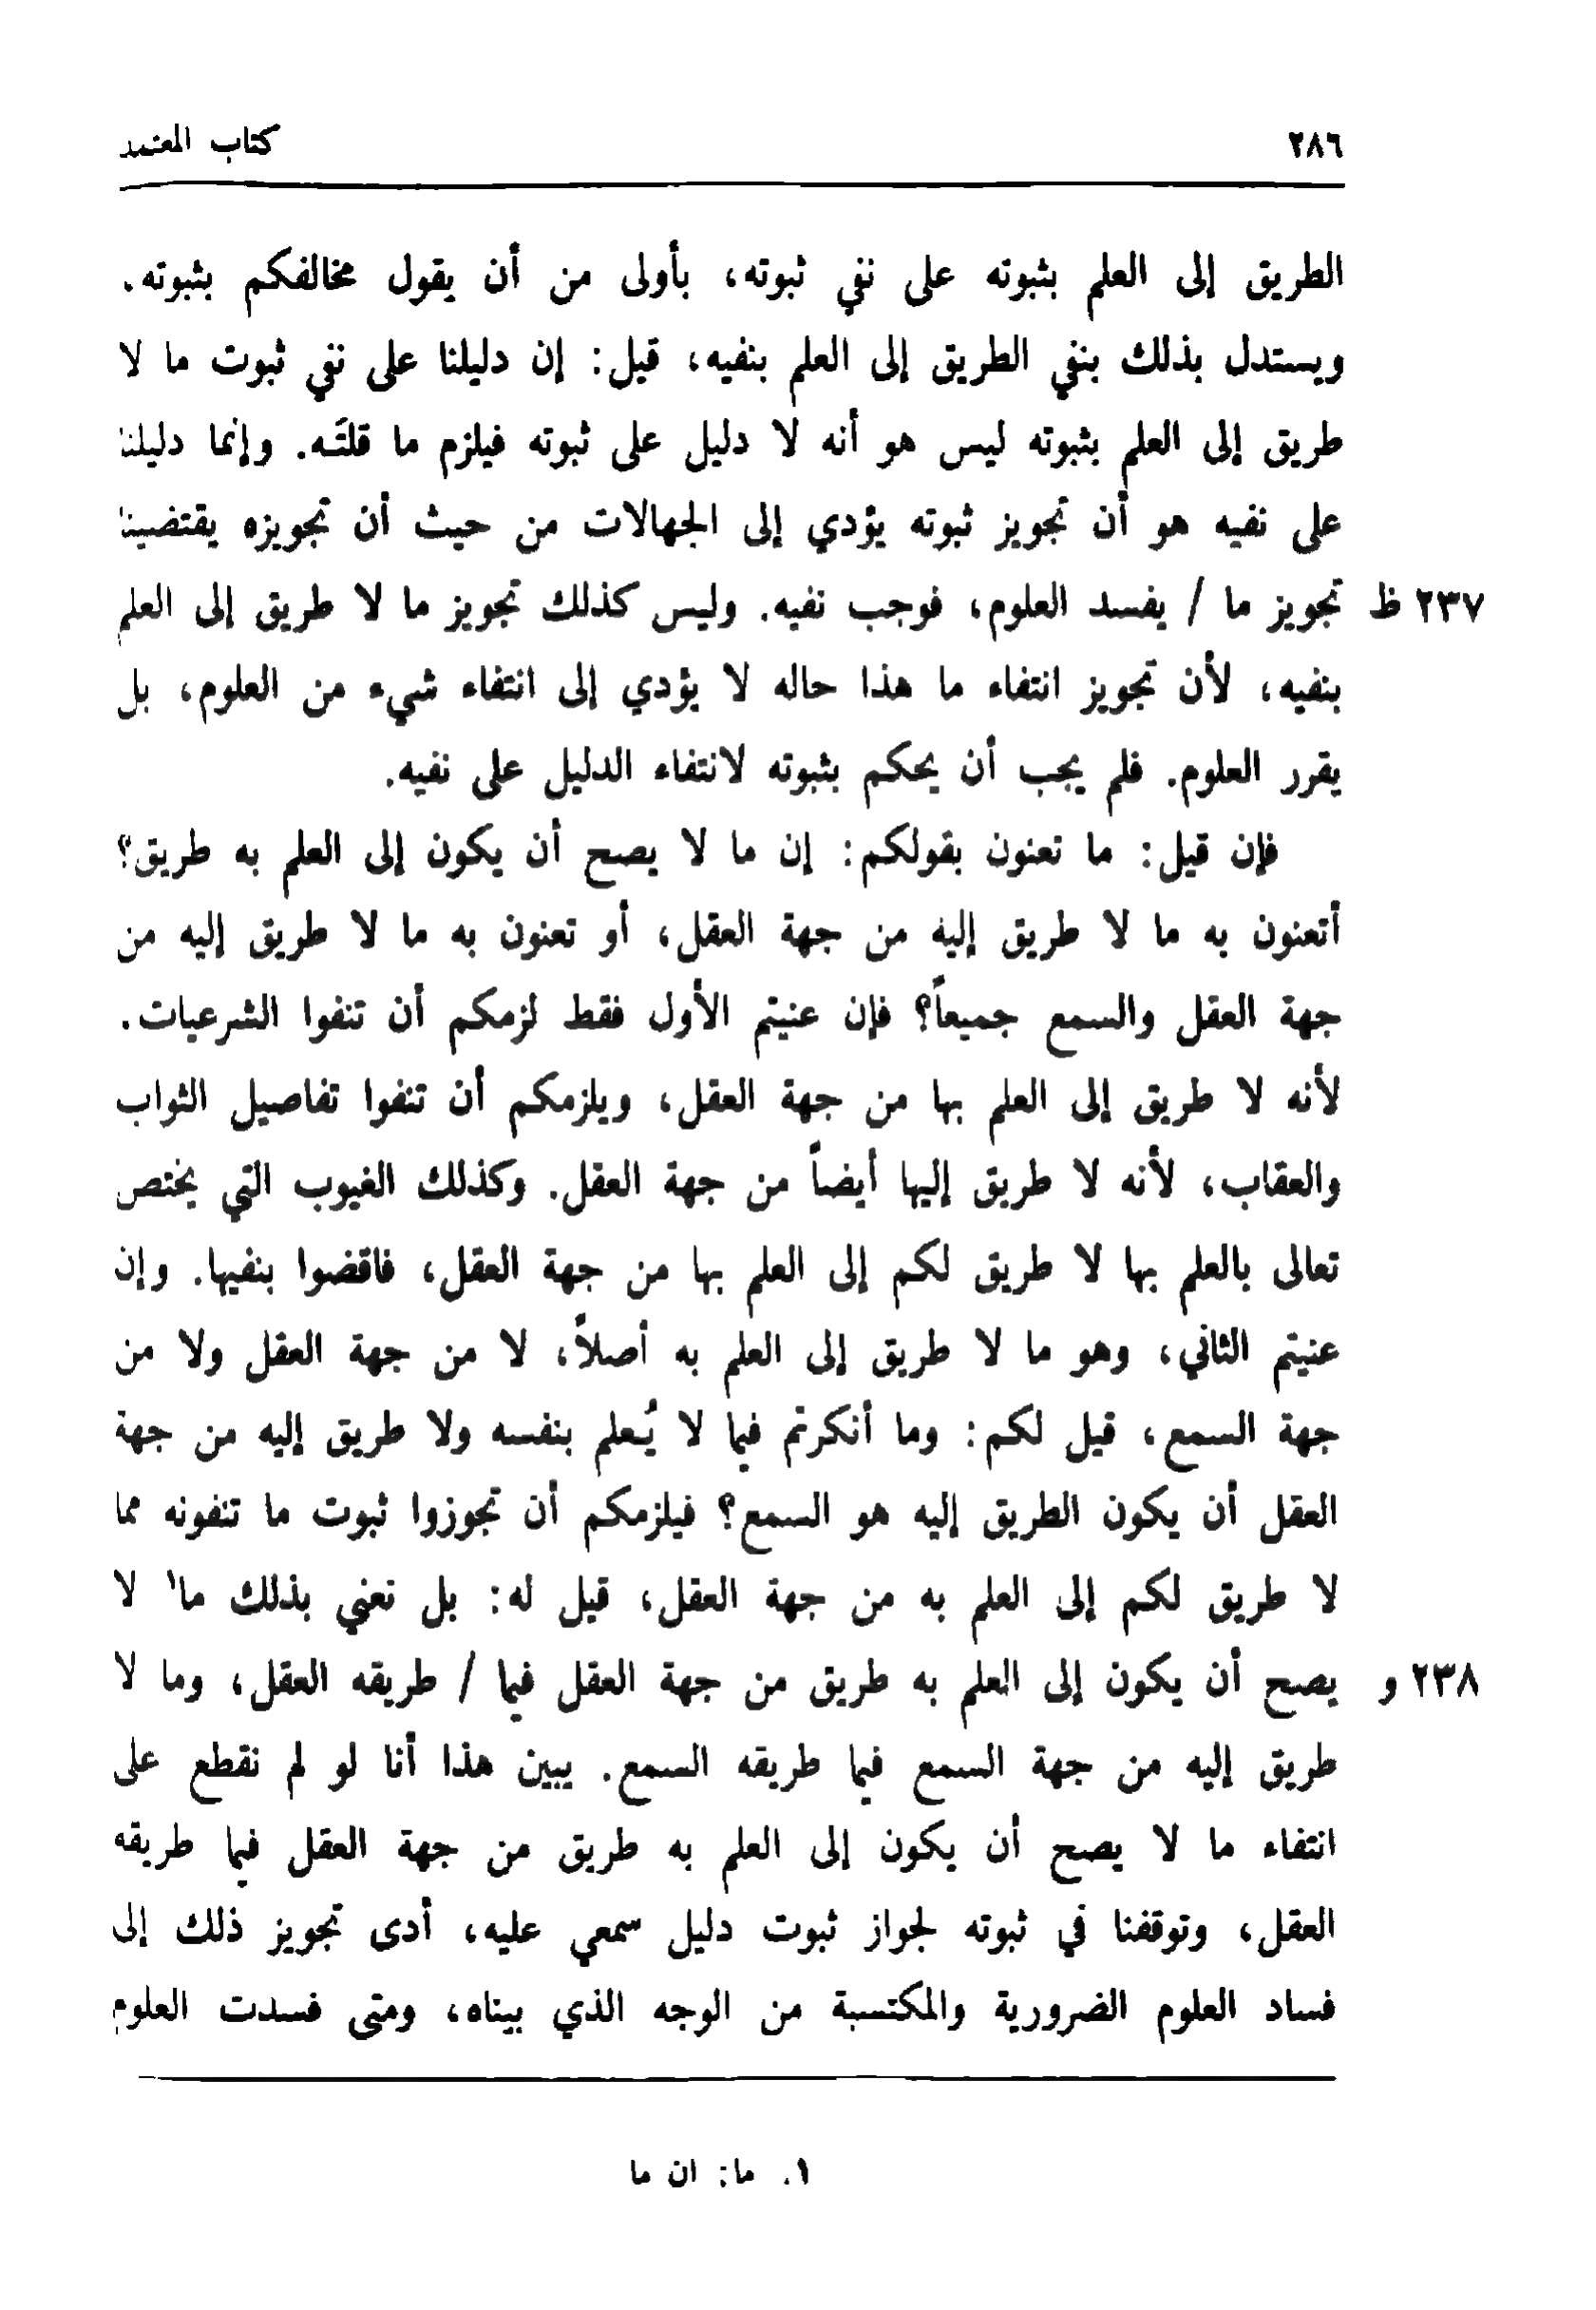 ٢٨٦ كتاب المعتمد
الطريق إلى العلم بثبوته على نفي ثبوته، بأولى من أن يقول مخالفكم بثبوته.
ويستدل بذلك بنفي الطريق إلى العلم بنفيه، قيل: إن دليلنا على نفي ثبوت ما لا
طريق إلى العلم بثبوته ليس هو أنه لا دليل على ثبوته فيلزم ما قلتَـه. وإنما دليلنا
على نفيه هو أن تجويز ثبوته يؤدي إلى الجهالات من حيث أن تجويزه يقتضينا
٢٣٧ ظ تجويز ما / يفسد العلوم، فوجب نفيه. وليس كذلك تجويز ما لا طريق إلى العلم
بنفيه، لأن تجويز انتفاء ما هذا حاله لا يؤدي إلى انتفاء شيء من العلوم، بل
يقرر العلوم. فلم يجب أن يحكم بثبوته لانتفاء الدليل على نفيه.
فإن قيل: ما تعنون بقولكم: إن ما لا يصح أن يكون إلى العلم به طريق؟
أتعنون به ما لا طريق إليه من جهة العقل، أو تعنون به ما لا طريق إليه من
جهة العقل والسمع جميعاً؟ فإن عنيتم الأول فقط لزمكم أن تنفوا الشرعيات.
لأنه لا طريق إلى العلم بها من جهة العقل، ويلزمكم أن تنفوا تفاصيل الثواب
والعقاب، لأنه لا طريق إليها أيضاً من جهة العقل. وكذلك الغيوب التي يختص
تعالى بالعلم بها لا طريق لكم إلى العلم بها من جهة العقل، فاقضوا بنفيها. وإن
عنيتم الثاني، وهو ما لا طريق إلى العلم به أصلاً، لا من جهة العقل ولا من
جهة السمع، قيل لكم: وما أنكرتم فيما لا يُـعلم بنفسه ولا طريق إليه من جهة
العقل أن يكون الطريق إليه هو السمع؟ فيلزمكم أن تجوزوا ثبوت ما تنفونه مما
لا طريق لكم إلى العلم به من جهة العقل، قيل له: بل نعني بذلك ما١ لا
٢٣٨ و يصح أن يكون إلى العلم به طريق من جهة العقل فيما / طريقه العقل، وما لا
طريق إليه من جهة السمع فيما طريقه السمع. يبين هذا أنا لو لم نقطع على
انتفاء ما لا يصح أن يكون إلى العلم به طريق من جهة العقل فيما طريقه
العقل، وتوقفنا في ثبوته لجواز ثبوت دليل سمعي عليه، أدى تجويز ذلك إلى
فساد العلوم الضرورية والمكتسبة من الوجه الذي بيناه، ومتى فسدت العلوم
١. ما: ان ما